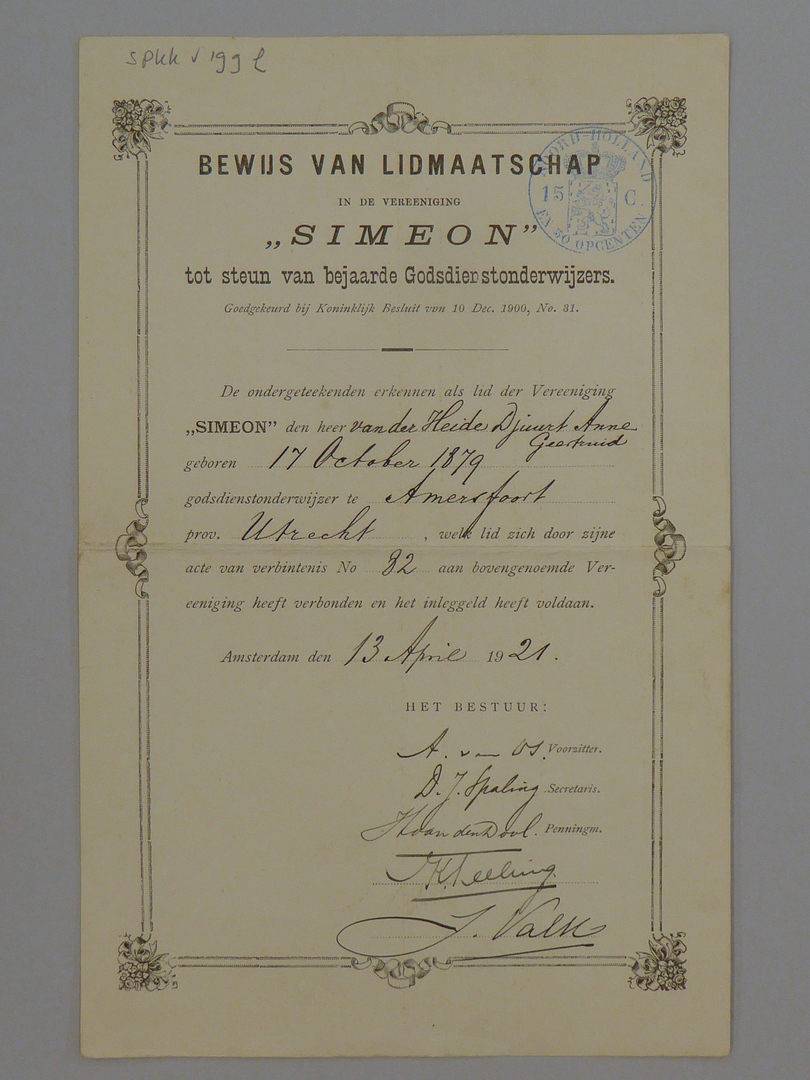 spkk v 199 l
BEWIJS VAN LIDMAATSCHAP
IN DE VEREENIGING
„SIMEON”
tot steun van bejaarde Godsdienstonderwijzers.
Goedgekeurd bij Koninklijk Besluit van 10 Dec. 1900, No. 31.
NOORD-HOLLAND
15 C.
EN 50 OPCENTEN
De ondergeteekenden erkennen als lid der Vereeniging
„SIMEON” den heer van der Heide Djuurt Anne
Geertruid
geboren 17 October 1879
godsdienstonderwijzer te Amersfoort
prov. Utrecht , welk lid zich door zijne
acte van verbintenis No 82 aan bovengenoemde Ver-
eeniging heeft verbonden en het inleggeld heeft voldaan.
Amsterdam den 13 April 1921.
HET BESTUUR:
A. van Os. Voorzitter.
D. J. Spaling Secretaris.
van den Dool. Penningm.
Teeling.
J. Valk